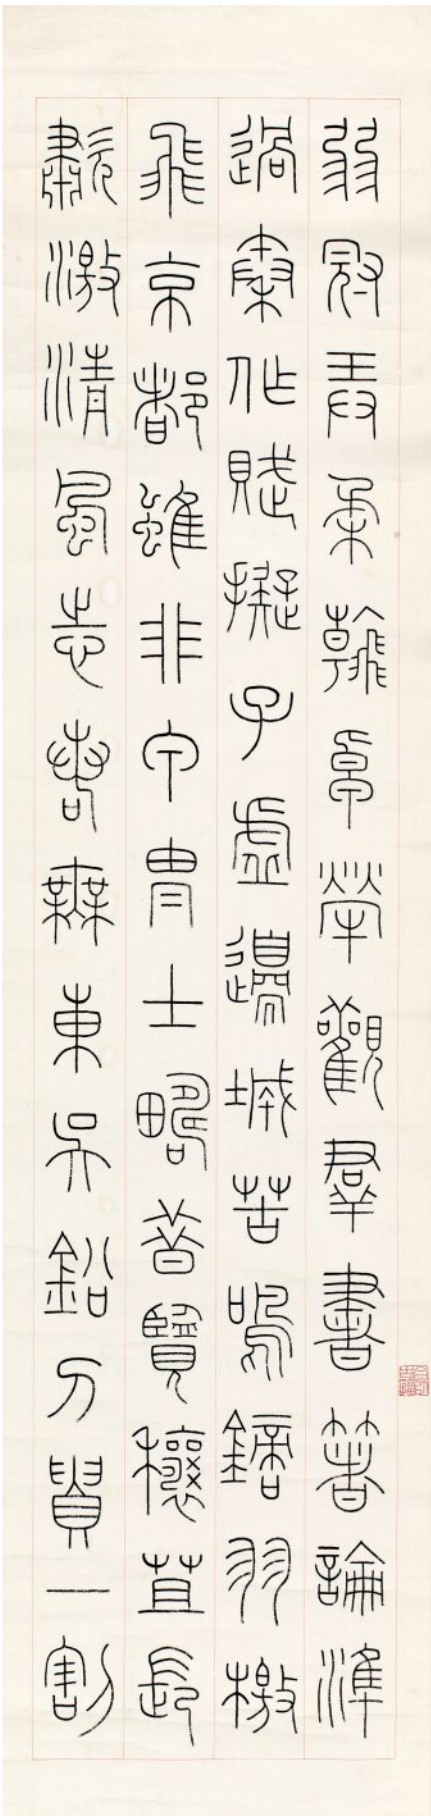 弱冠弄柔翰卓犖觀群書著論準
過秦作賦擬子虛邊城苦鳴鏑羽檄
飛京都雖非甲冑士疇昔覽穰苴長
嘯激清風志若無東吳鉛刀貴一割